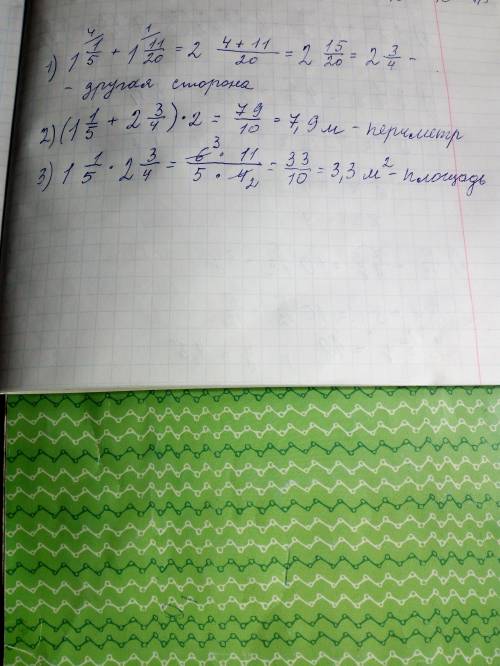 1) 1 1/5 + 1 11/20 = 2 (4 + 11)/20 = 2 15/20 = 2 3/4 -
- другая сторона
2) (1 1/5 + 2 3/4) · 2 = 79/10 = 7,9 м - периметр
3) 1 1/5 · 2 3/4 = (6 3 · 11)/(5 · 4 2) = 33/10 = 3,3 м² - площадь